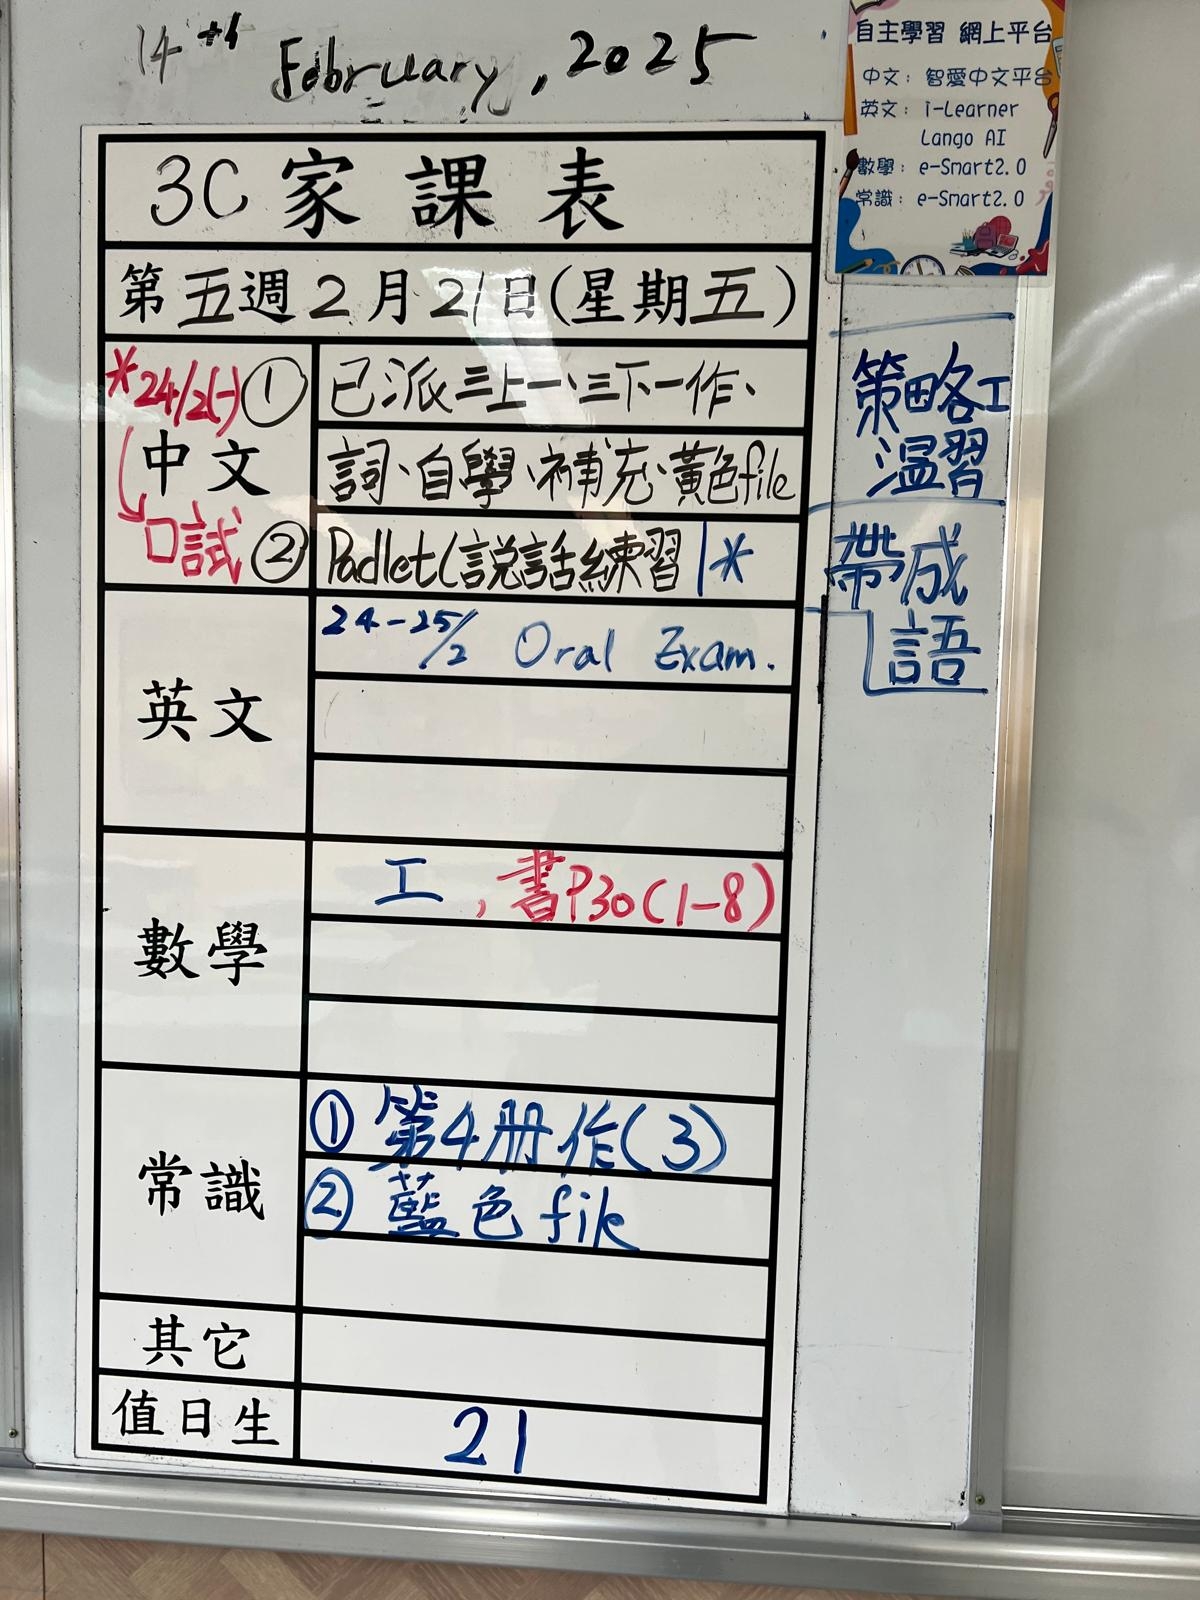 14th February, 2025
自主學習 網上平台
中文：智愛中文平台
英文：i-Learner
Lango AI
數學：e-Smart2.0
常識：e-Smart2.0
3C 家課表
第五週2月21日(星期五)
*24/2(一)
口試
中文
① 已派三上一、三下一作、
詞、自學、補充、黃色file
② Padlet(説話練習)*
策略工
溫習
帶成
語
英文
24-25/2 Oral Exam.
數學
工，書P30(1-8)
常識
① 第4册作(3)
② 藍色file
其它
值日生
21